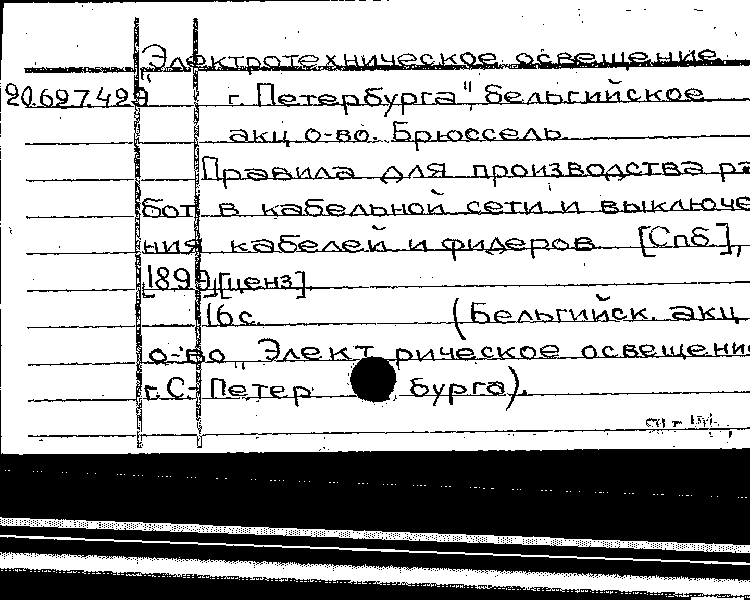 "Электротехническое освещение
20.627.429 г. Петербурга", бельгийское
акц о-во. Брюссель.
Правила для производства ра
бот в кабельной сети и выключе
ния кабелей и фидеров [Спб.],
[1899],[ценз].
16 с. (Бельгийск. акц
о-во „Элект рическое освещени
г. С- Петер бурга).